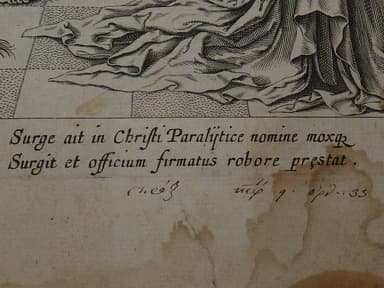 Surge ait in Christi Paralÿtice nomine moxq₃
Surgit et officium firmatus robore pręstat.